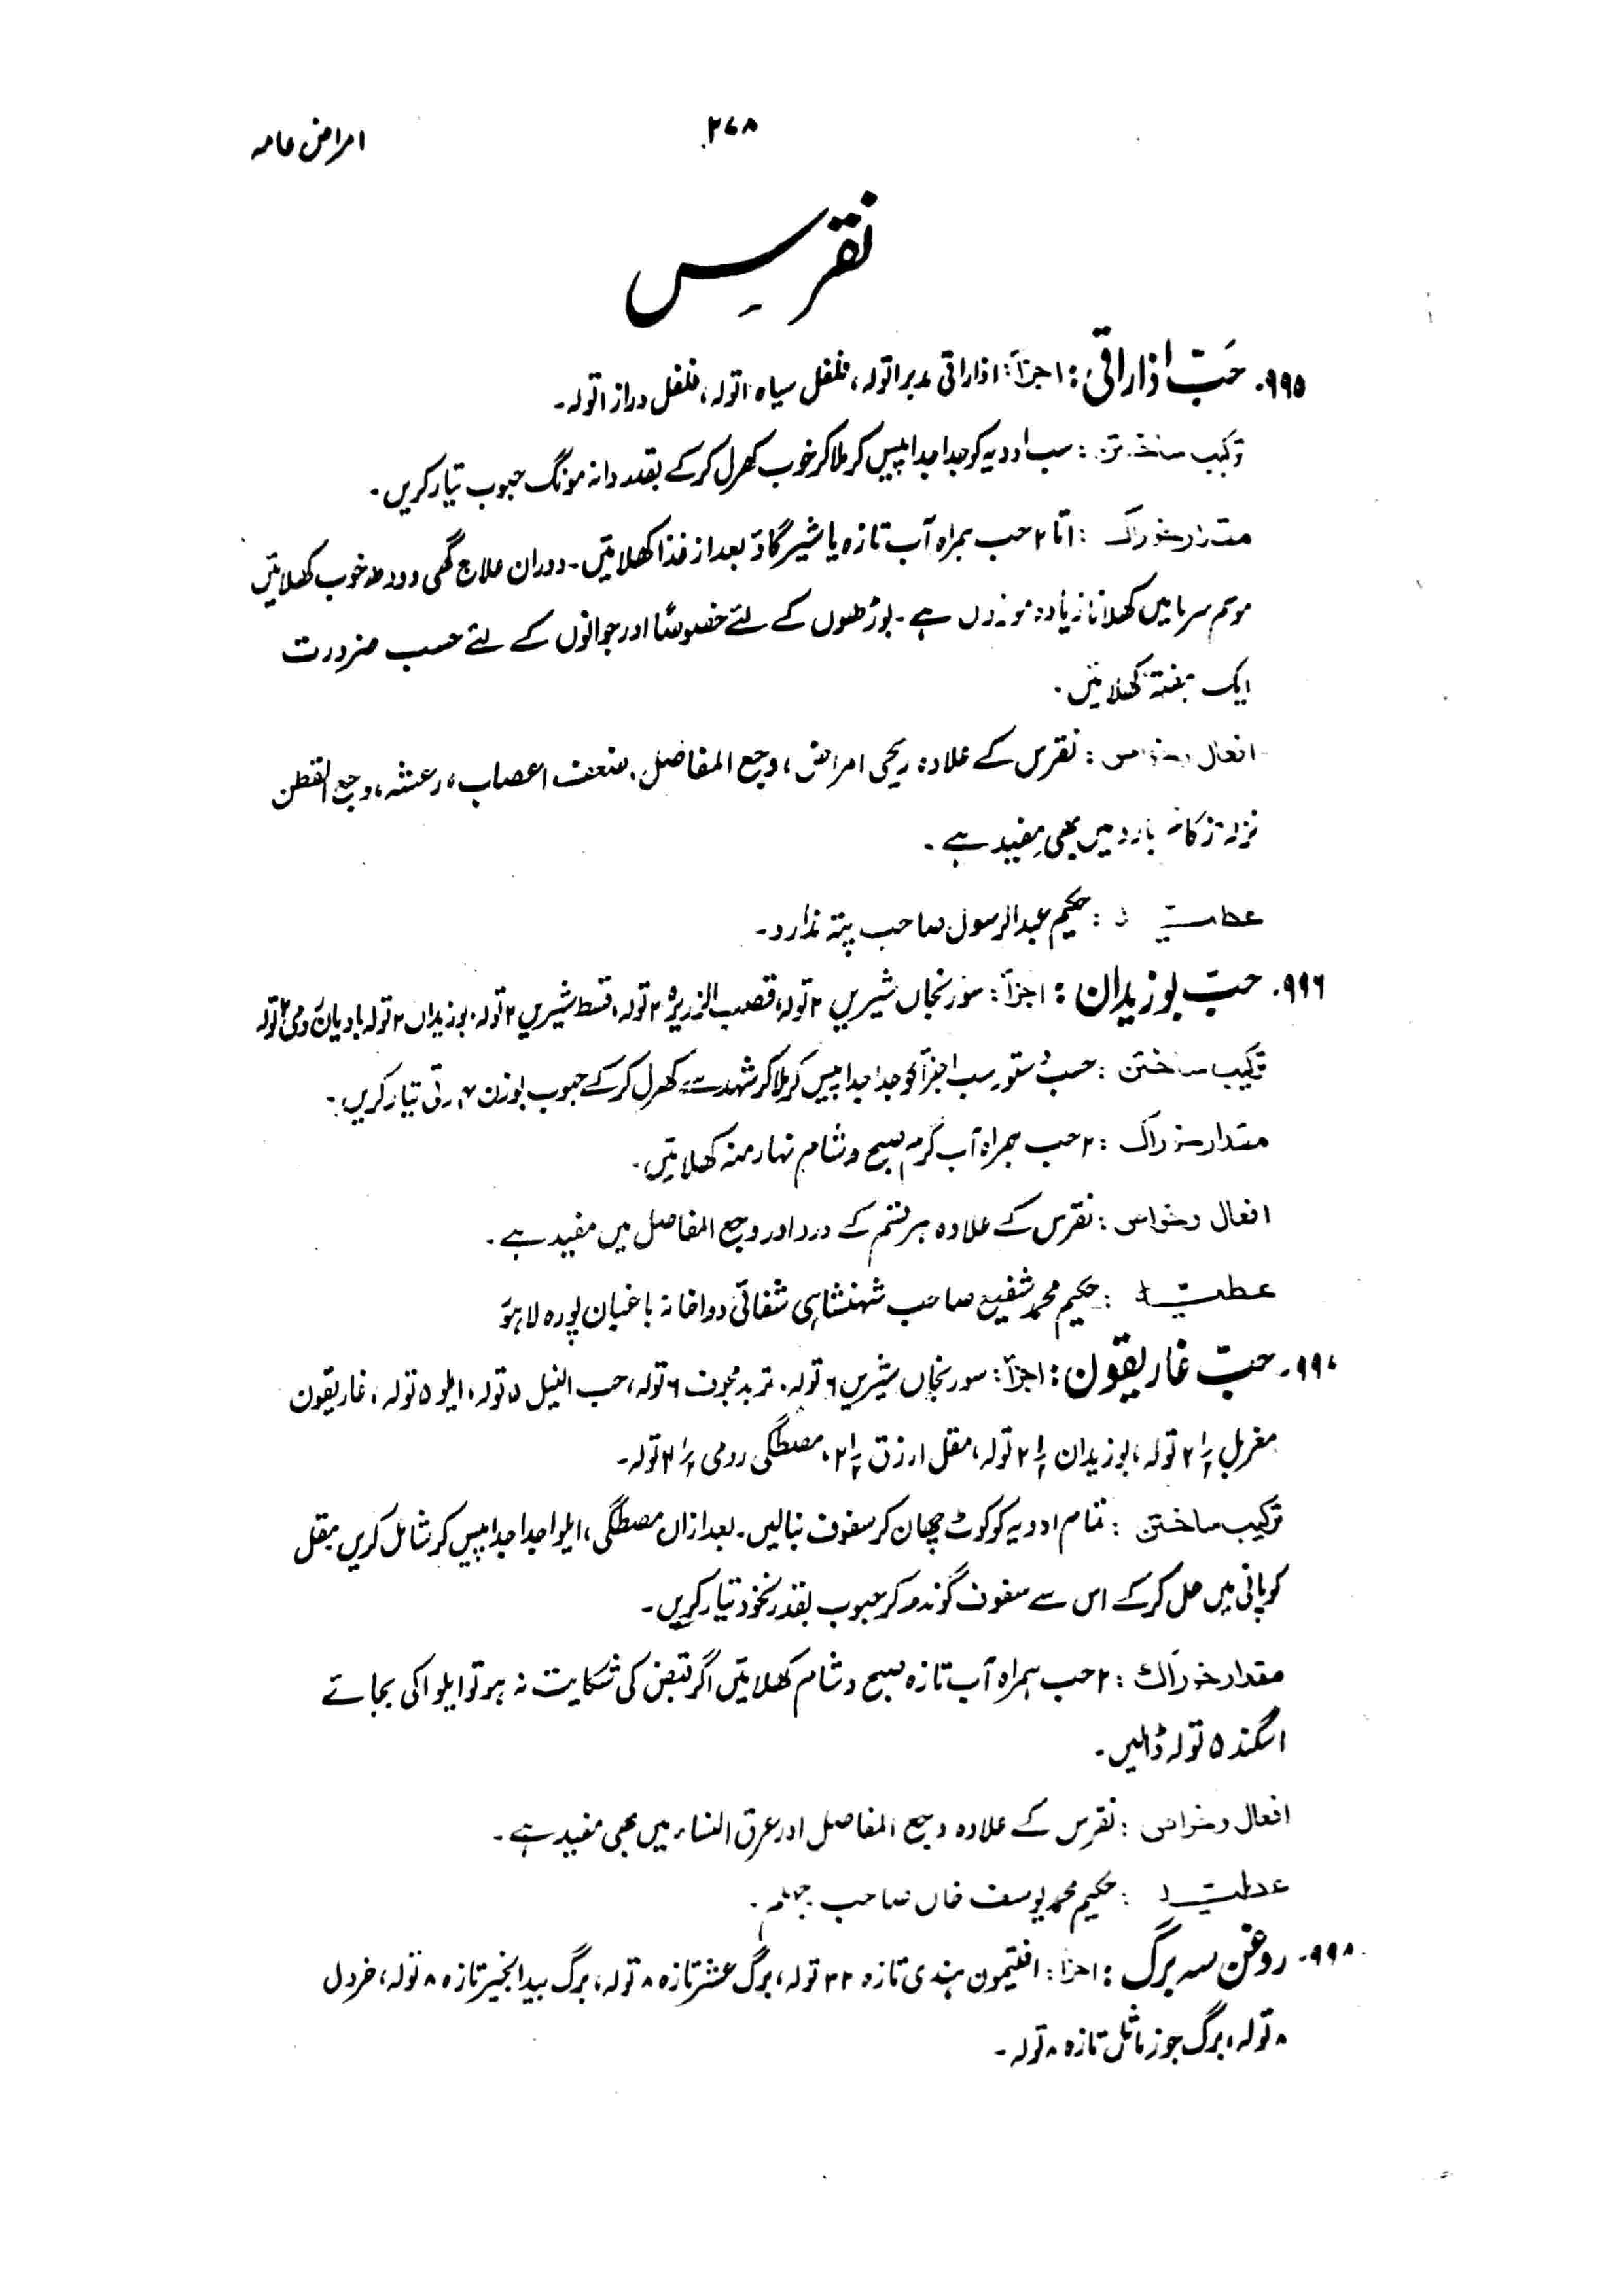 امراض عامہ
۲۷۸
نقرس
۹۹۵۔ حَبّ اذاراقی: اجزاَ: اذاراقی مدبر اتولہ، فلفل سیاہ اتولہ، فلفل دراز اتولہ۔
ترکیب ساختن: سب ادویہ کو جدا جدا پیس کر ملا کر خوب کھرل کر کے بقدر دانہ مونگ حبوب تیار کریں۔
مقدار خوراک: ۱ تا ۲ حب ہمراہ آب تازہ یا شیر گاؤ بعد از غذا کھلائیں۔ دوران علاج گھی دودھ خوب کھلائیں
موسم سرما میں کھلانا زیادہ موزوں ہے۔ بوڑھوں کے لئے خصوصًا اور جوانوں کے لئے حسب ضرورت
ایک ہفتہ کھلائیں۔
افعال و خواص: نقرس کے علاوہ ریحی امراض، وجع المفاصل، ضعف اعصاب، رعشہ، وجع القطن
نزلہ زکام بارد میں بھی مفید ہے۔
عطیہ: حکیم عبدالرسول صاحب پتہ ندارد۔
۹۹۶۔ حبّ بوزیدان: اجزاَ: سورنجاں شیریں ۲ تولہ، قصب الزریرہ ۲ تولہ، قسط شیریں ۲ تولہ، بوزیداں ۲ تولہ بادیان رومی ۲ تولہ
ترکیب ساختن: حسب دستور سب اجزاَ کو جدا جدا پیس کر ملا کر شہد سے کھرل کر کے حبوب بوزن ۴ رتی تیار کریں۔
مقدار خوراک: ۲ حب ہمراہ آب گرم صبح و شام نہار منہ کھلائیں۔
افعال و خواص: نقرس کے علاوہ ہر قسم کے درد اور وجع المفاصل میں مفید ہے۔
عطیہ: حکیم محمد شفیع صاحب شہنشاہی شفائی دواخانہ باغبان پورہ لاہور
۹۹۷۔ حبّ غاریقون: اجزاَ: سورنجاں شیریں ۶ تولہ، تربد مجوف ۶ تولہ، حب النیل ۵ تولہ، ایلوا ۵ تولہ، غاریقون
مغربل ۲ ۱/۲ تولہ، بوزیدان ۲ ۱/۲ تولہ، مقل ارزق ۲ ۱/۲، مصطگی رومی ۲ ۱/۲ تولہ۔
ترکیب ساختن: تمام ادویہ کو کوٹ چھان کر سفوف بنالیں۔ بعد ازاں مصطگی، ایلوا جدا جدا پیس کر شامل کریں مقل
کو پانی میں حل کر کے اس سے سفوف گوندھ کر حبوب بقدر نخود تیار کریں۔
مقدار خوراک: ۲ حب ہمراہ آب تازہ صبح و شام کھلائیں اگر قبض کی شکایت نہ ہو تو ایلوا کی بجائے
اسگند ۵ تولہ ڈالیں۔
افعال و خواص: نقرس کے علاوہ وجع المفاصل اور عرق النساء میں بھی مفید ہے۔
عطیہ: حکیم محمد یوسف خاں صاحب جہلم۔
۹۹۸۔ روغن سہ برگ: اجزا: افتیمون ہندی تازہ ۳۲ تولہ، برگ عشر تازہ ۸ تولہ، برگ بید انجیر تازہ ۸ تولہ، خردل
۸ تولہ، برگ جوز ماثل تازہ ۸ تولہ۔